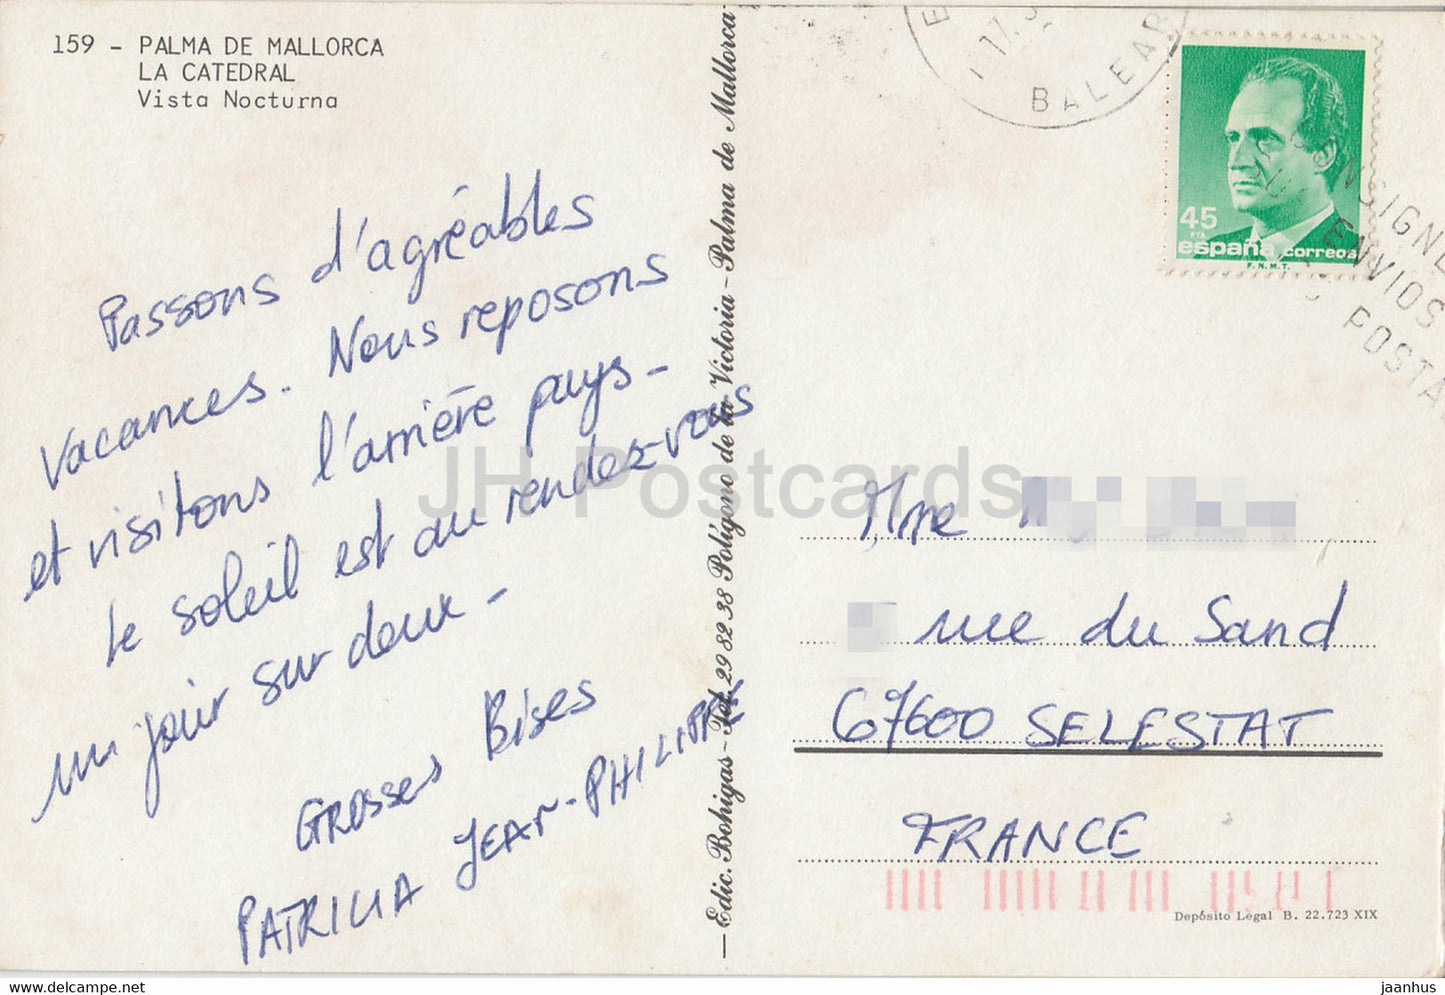 159 - PALMA DE MALLORCA
LA CATEDRAL
Vista Nocturna
Passons d'agréables
vacances. Nous reposons
et visitons l'arrière pays-
le soleil est au rendez-vous
un jour sur deux -
GROSSES BISES
PATRICIA JEAN-PHILIPPE
Edic. Bohigas - Tel. 29 82 38 Polígono de la Victoria - Palma de Mallorca
BALEAR
17.
45
PTA
españa correos
F.N.M.T.
CONSIGNE
ENVIOS
POSTA
Mme
rue du Sand
67600 SELESTAT
FRANCE
Depósito Legal B. 22.723 XIX
JH Postcards
jaanhus jaanhus.com